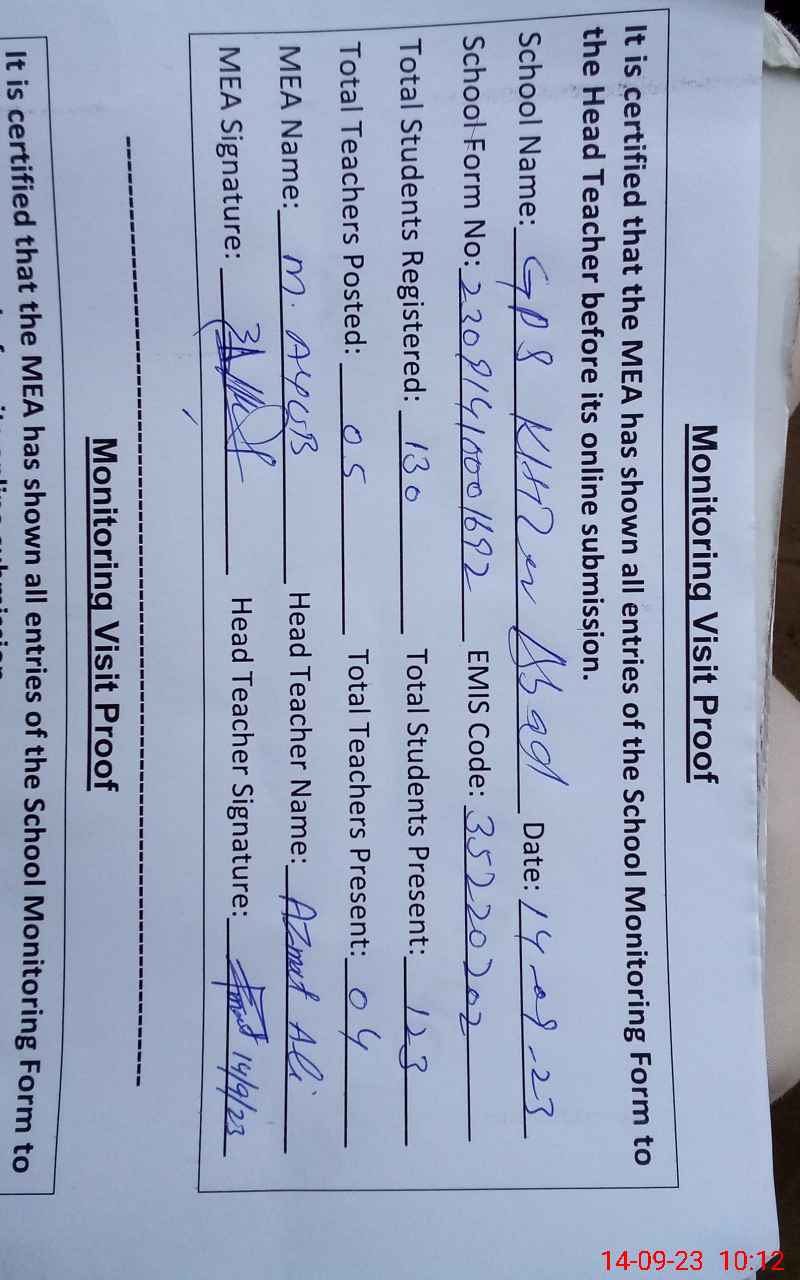 Monitoring Visit Proof
It is certified that the MEA has shown all entries of the School Monitoring Form to
the Head Teacher before its online submission.
School Name: GPS Abad Date: 14-09-23
School Form No: EMIS Code: 35220202
Total Students Registered: 130 Total Students Present: 123
Total Teachers Posted: 05 Total Teachers Present: 04
MEA Name: M. AYUB Head Teacher Name: Azmat Ali
MEA Signature: Head Teacher Signature: Azmat 14/9/23
Monitoring Visit Proof
It is certified that the MEA has shown all entries of the School Monitoring Form to
14-09-23 10:12